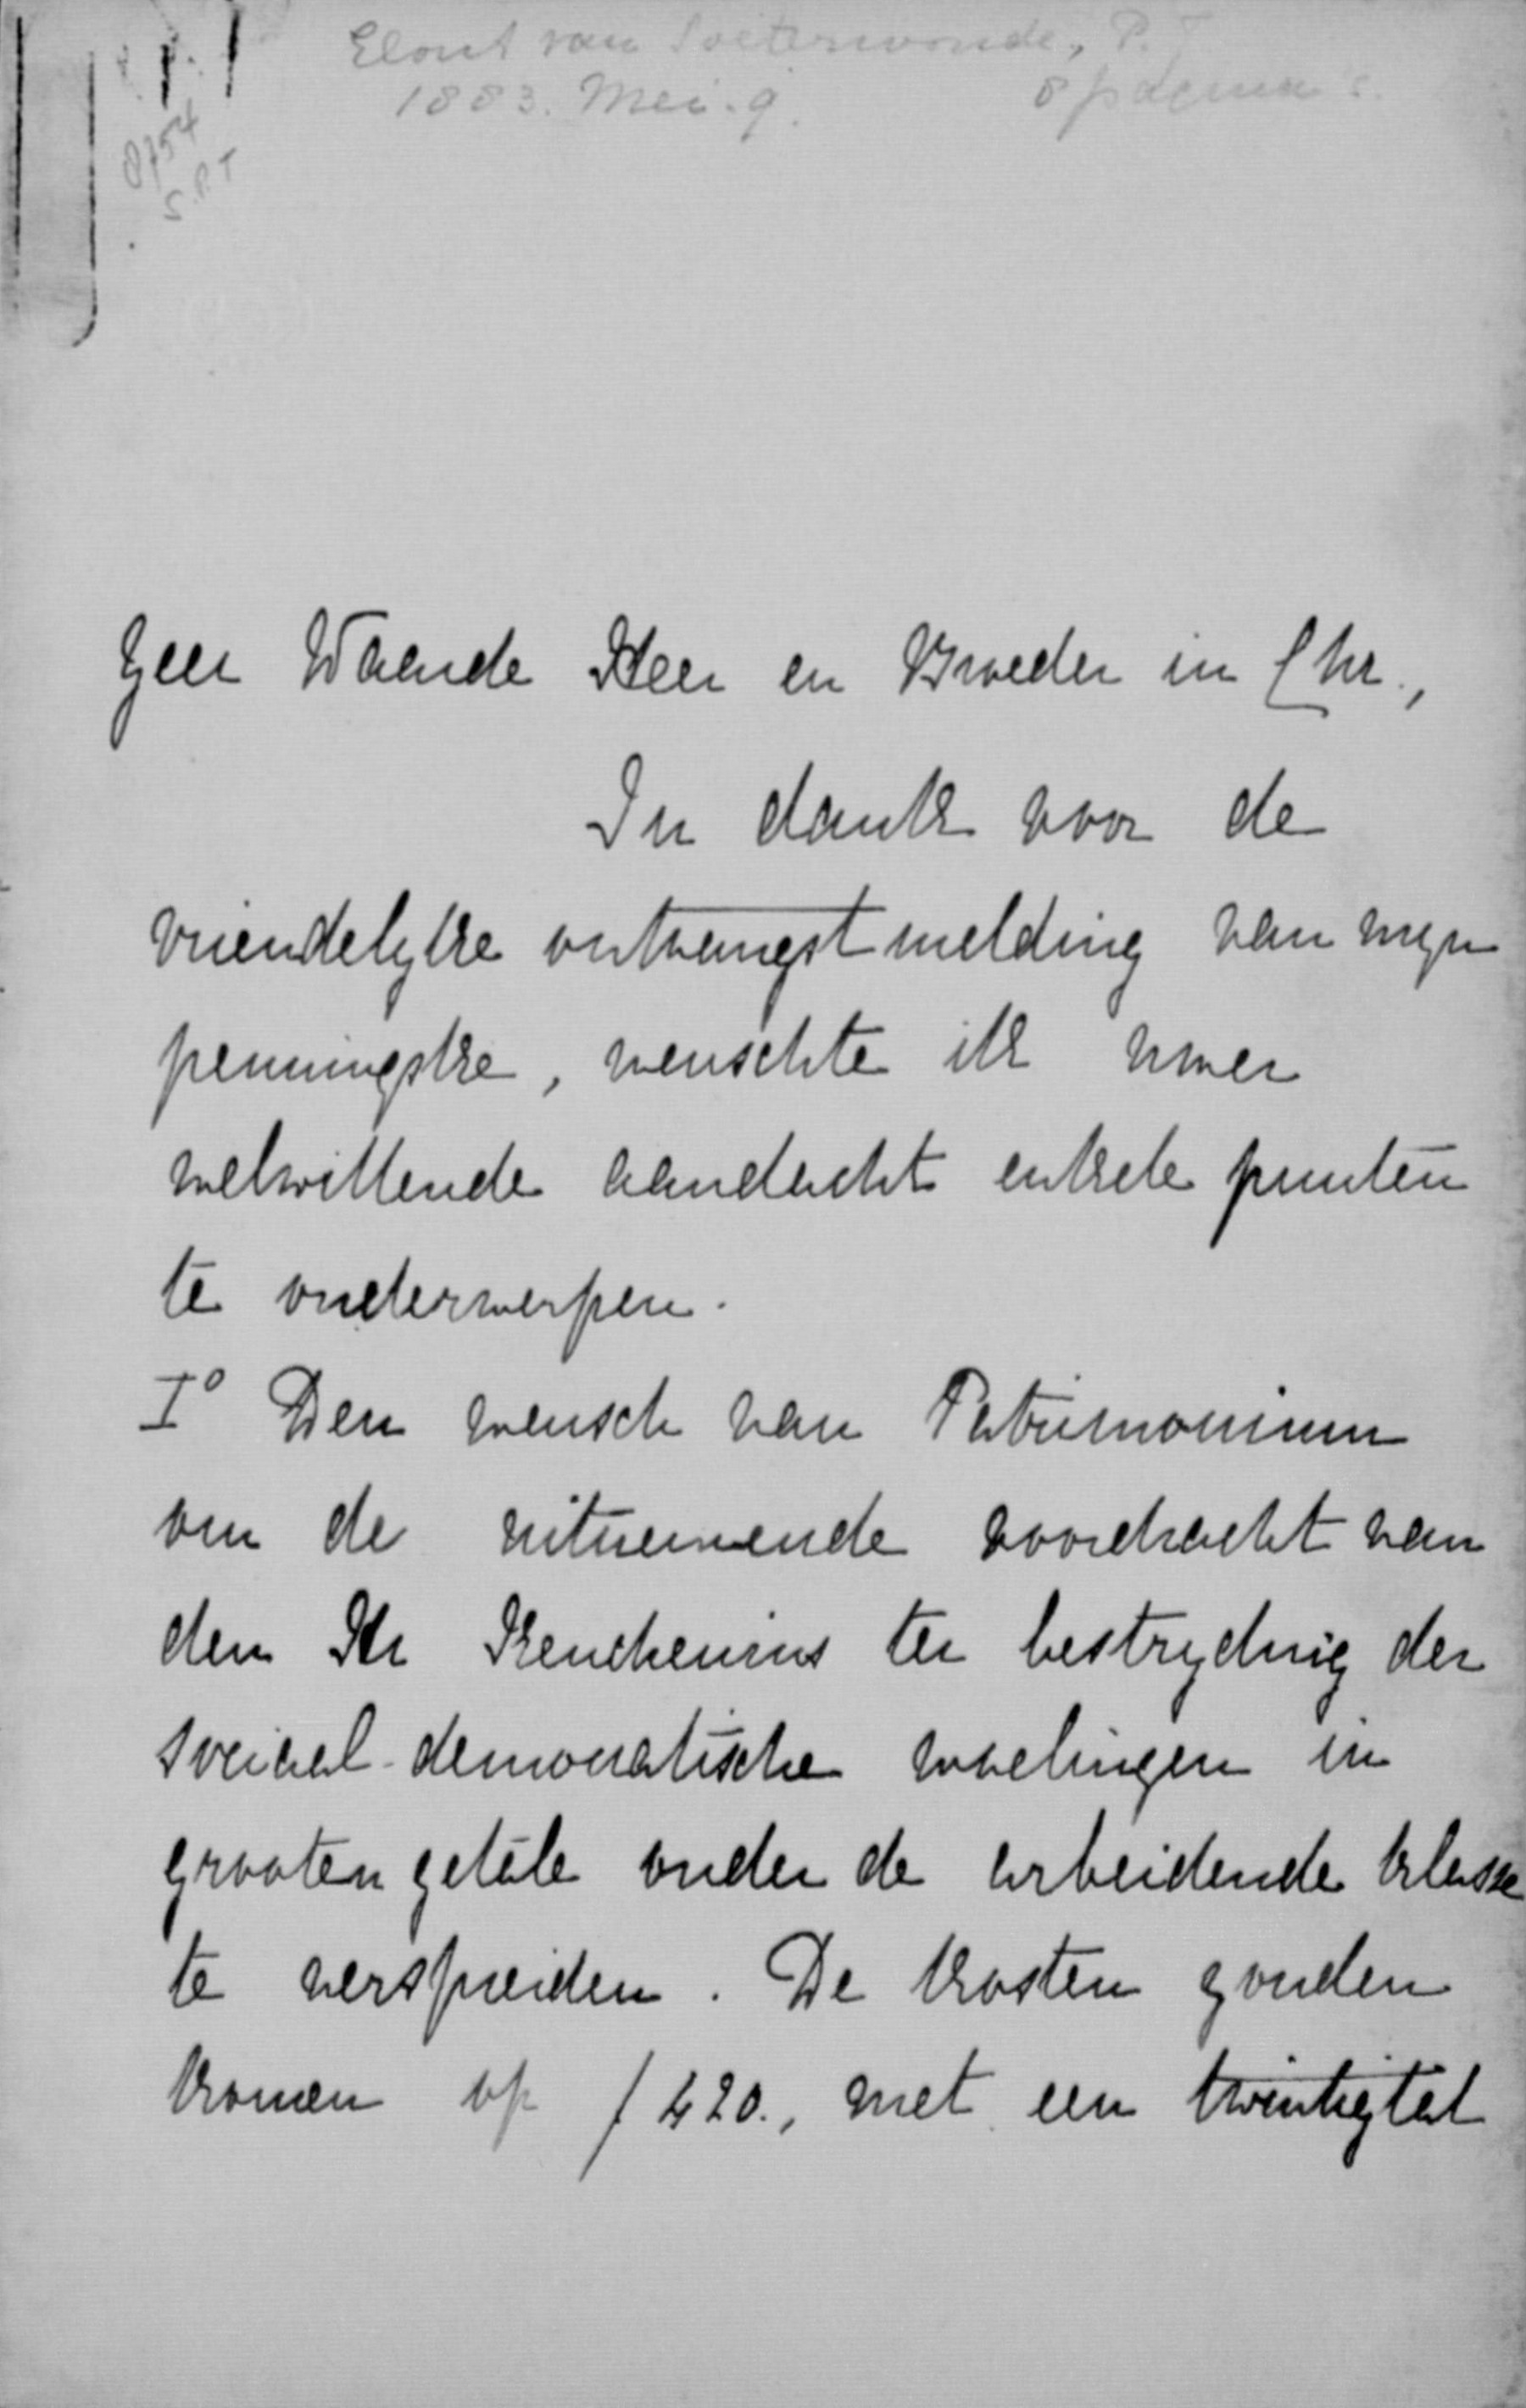 Elout van Soeterwoude, P.J
1883. Mei. 9. 8 pagina's.
8754
S.P.T
Zeer Waarde Heer en Broeder in Chr.,
In dank voor de
vriendelyke ontvangstmelding van myn
penningske, wenschte ik uwer
welwillende aandacht enkele punten
te onderwerpen.
I° Den wensch van Patrimonium
om de uitnemende voordracht van
den Hr Keuchenius ter bestryding der
sociaal-democratische woelingen in
grooten getale onder de arbeidende klasse
te verspreiden. De kosten zouden
komen op f 420., met een twintigtal